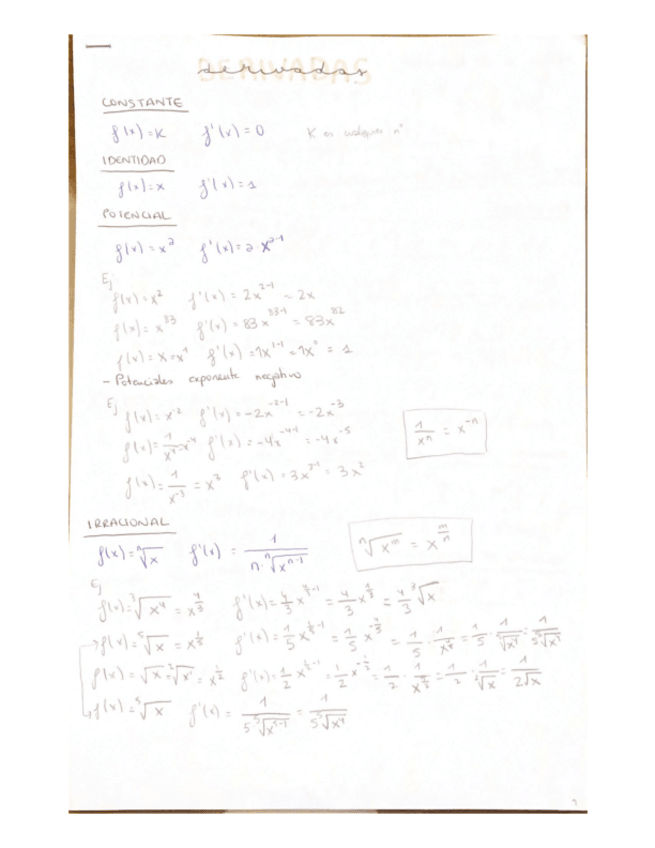 DERIVADAS
derivadas
CONSTANTE
f(x)=K f'(x)=0 K es cualquier nº
IDENTIDAD
f(x)=x f'(x)=1
POTENCIAL
f(x)=xᵃ f'(x)=a·xᵃ⁻¹
Ej
f(x)=x² f'(x)=2x²⁻¹=2x
f(x)=x⁸³ f'(x)=83x⁸³⁻¹=83x⁸²
f(x)=x=x¹ f'(x)=1x¹⁻¹=1x⁰=1
- Potenciales exponente negativo
Ej
f(x)=x⁻² f'(x)=-2x⁻²⁻¹=-2x⁻³
f(x)=1/x⁴=x⁻⁴ f'(x)=-4x⁻⁴⁻¹=-4x⁻⁵
1/xⁿ = x⁻ⁿ
f(x)=1/x⁻³=x³ f'(x)=3x³⁻¹=3x²
IRRACIONAL
f(x)=ⁿ√x f'(x)=1/(n·ⁿ√xⁿ⁻¹)
ⁿ√xᵐ = x^(m/n)
Ej
f(x)=³√x⁴=x^(4/3) f'(x)=4/3 x^(4/3-1)=4/3 x^(1/3)=4/3 ³√x
f(x)=⁵√x=x^(1/5) f'(x)=1/5 x^(1/5-1)=1/5 x^(-4/5)=1/5·1/x^(4/5)=1/5·1/⁵√x⁴=1/(5⁵√x⁴)
f(x)=√x=²√x¹=x^(1/2) f'(x)=1/2 x^(1/2-1)=1/2 x^(-1/2)=1/2·1/x^(1/2)=1/2·1/²√x=1/(2√x)
f(x)=⁵√x f'(x)=1/(5⁵√x⁵⁻¹)=1/(5⁵√x⁴)
1